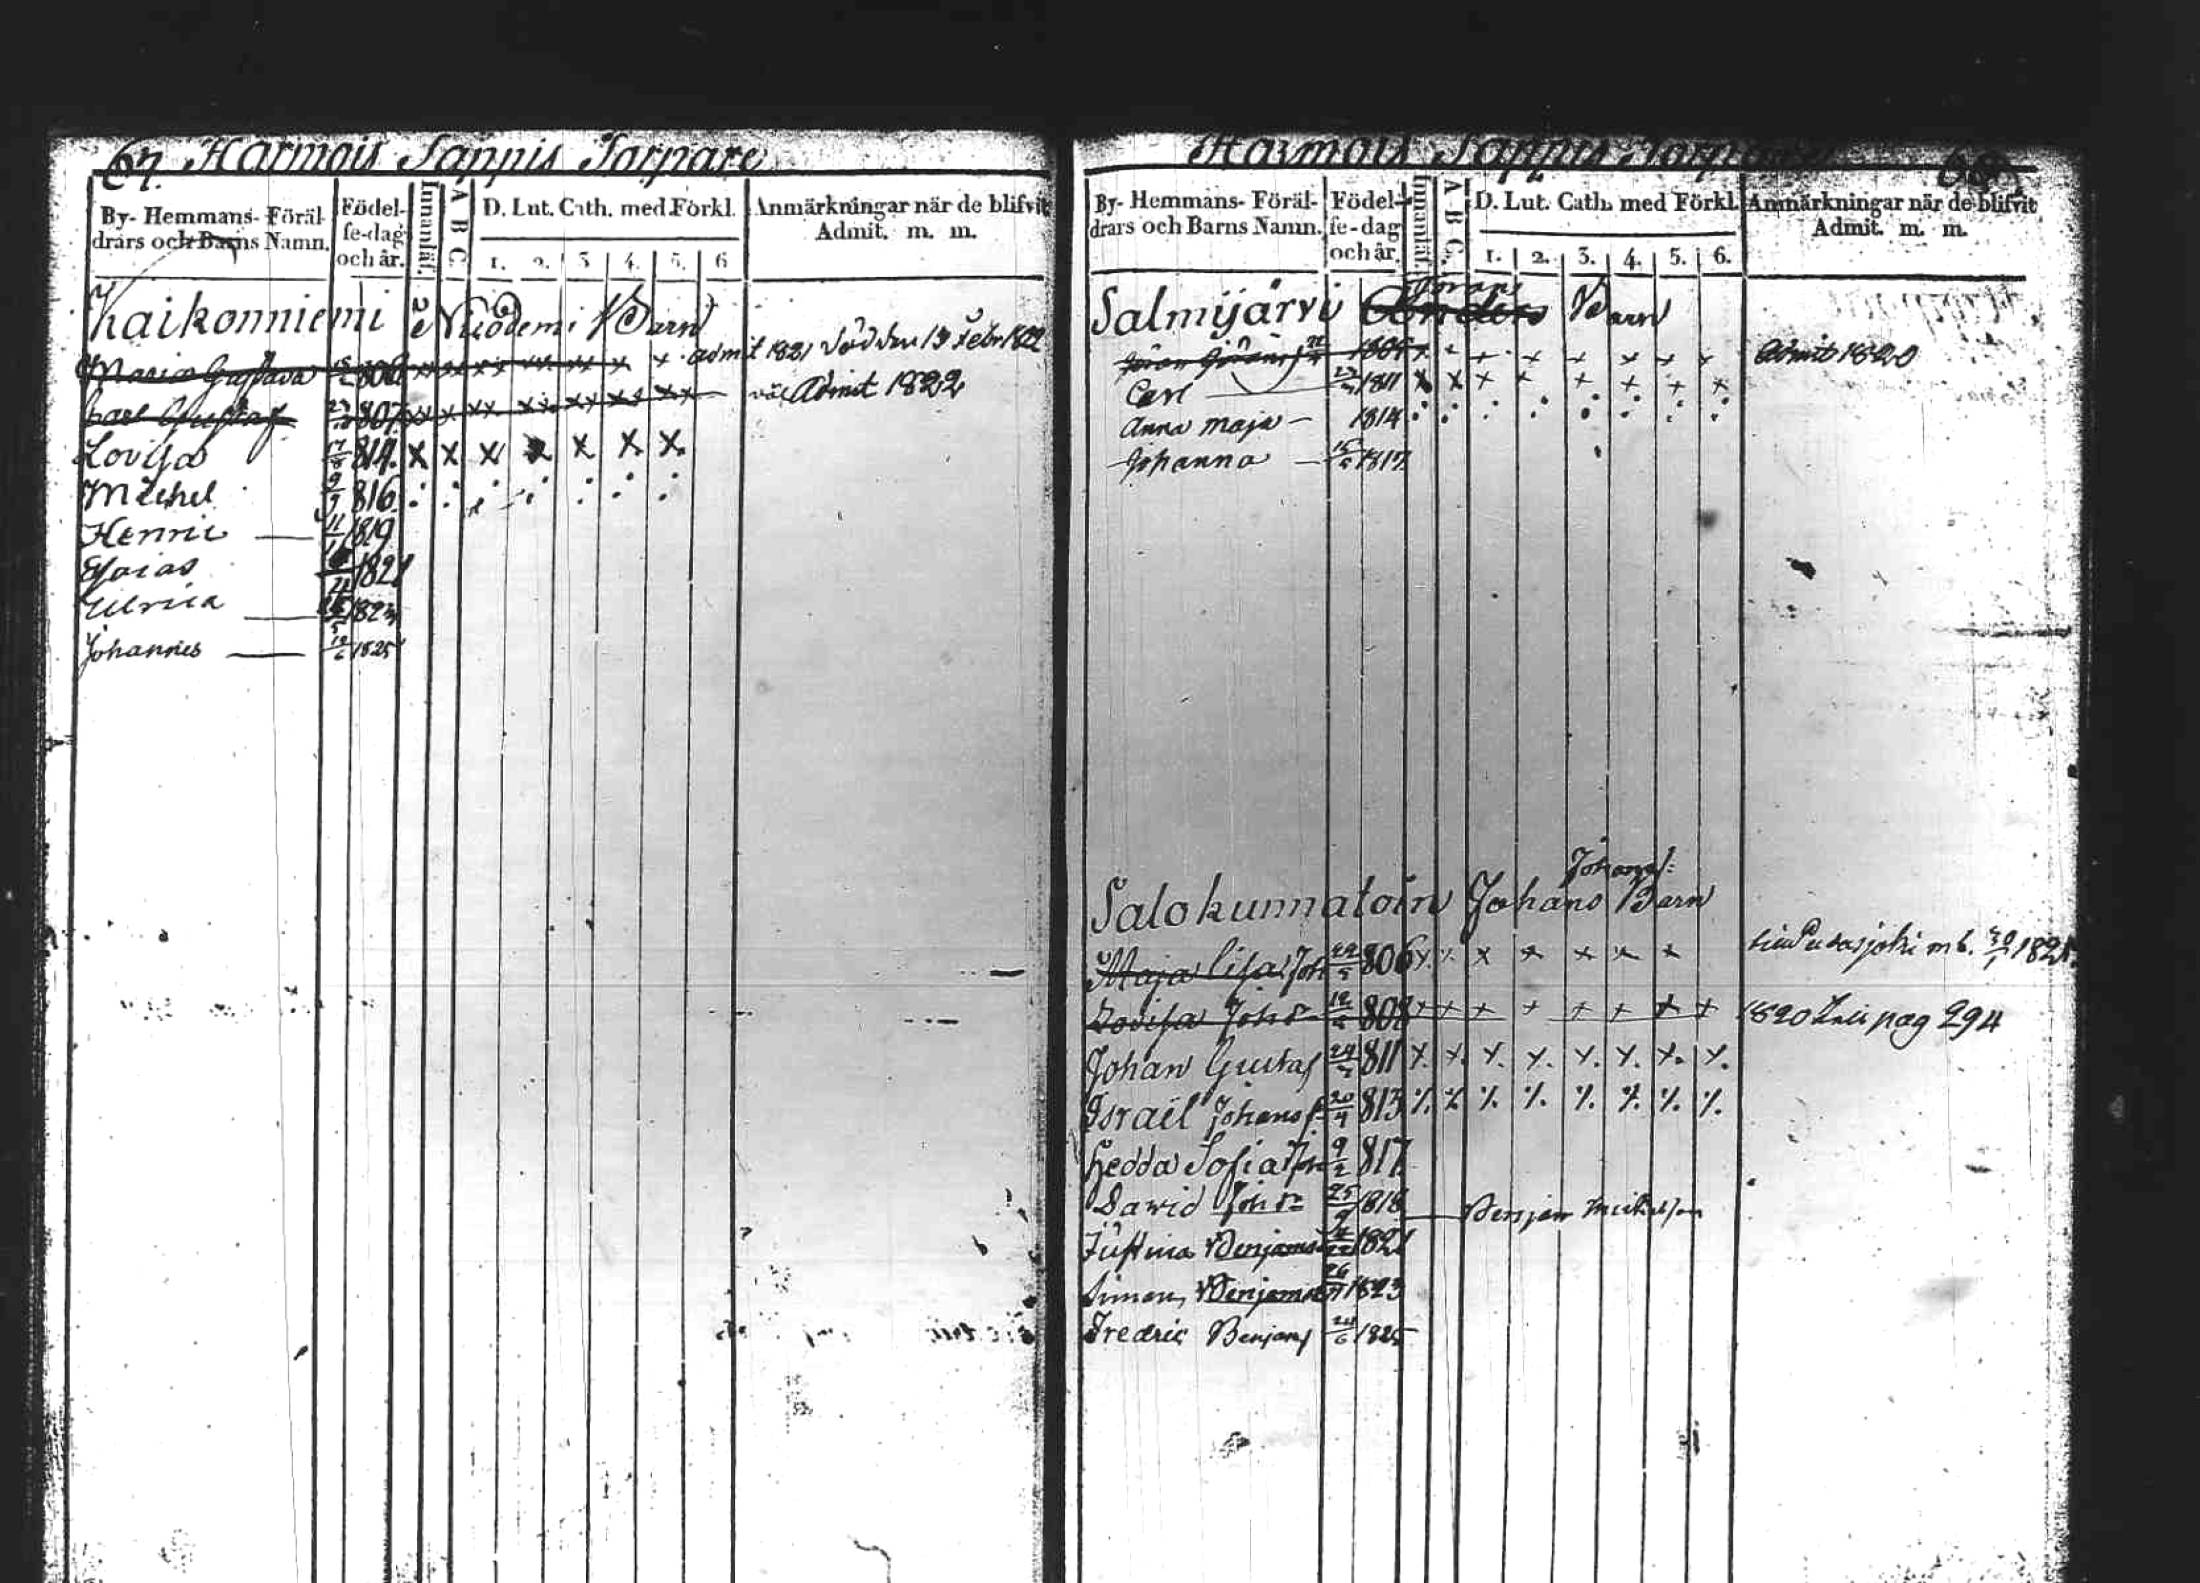 67. Harmois Sappis Torpare
By- Hemmans- Föräl-
drars och Barns Namn.
Födel-
se-dag
och år.
Innanläf.
A B C.
D. Lut. Cath. med Förkl.
1. 2. 3 4. 5. 6
Anmärkningar når de blifvit
Admit. m. m.
Kaikonniemi Nicodemi Barn
Maria Gustava 806 x x x x x x x x admit 1821 död den 13 Febr 1822
Carl Gustaf 807 Admit 1822
Lovisa 17/8 814. x x x x x x x
Michel 9/9 816.
Henric 11/11 1819
Esaias 1821
Ulrica 1823
Johannes 12/6 1825
Harmois Sappis Torpare 68
By- Hemmans- Föräl-
drars och Barns Namn.
Födel-
se-dag
och år.
Innanläf.
A B C.
D. Lut. Cath. med Förkl.
1. 2. 3. 4. 5. 6.
Anmärkningar når de blifvit
Admit. m. m.
Görans
Salmijärvi Anders Barn
x x x x x x x x Admit 1820
Carl 1811 x x x x x x x x
Anna Maja 1814
Johanna 15/5 1817
Johansf:
Salokunnatoin Johans Barn
Maja Lisa Joh 22/5 806 x x x x x x x 1821.
Lovisa Joh Dr 12/5 808 x x x x x x x x 1820 pag 294
Johan Gustaf 811 x. x. x. x. x. x. x. x.
Israël Johansf 20/4 813
Hedda Sofia Joh 9/2 817
Dawid Joh Sn 25/9 1818 Benjam Mickelson
Justina Benjams 1821
Simon Benjams 1823
Fredric Benjamsf 24/6 1825